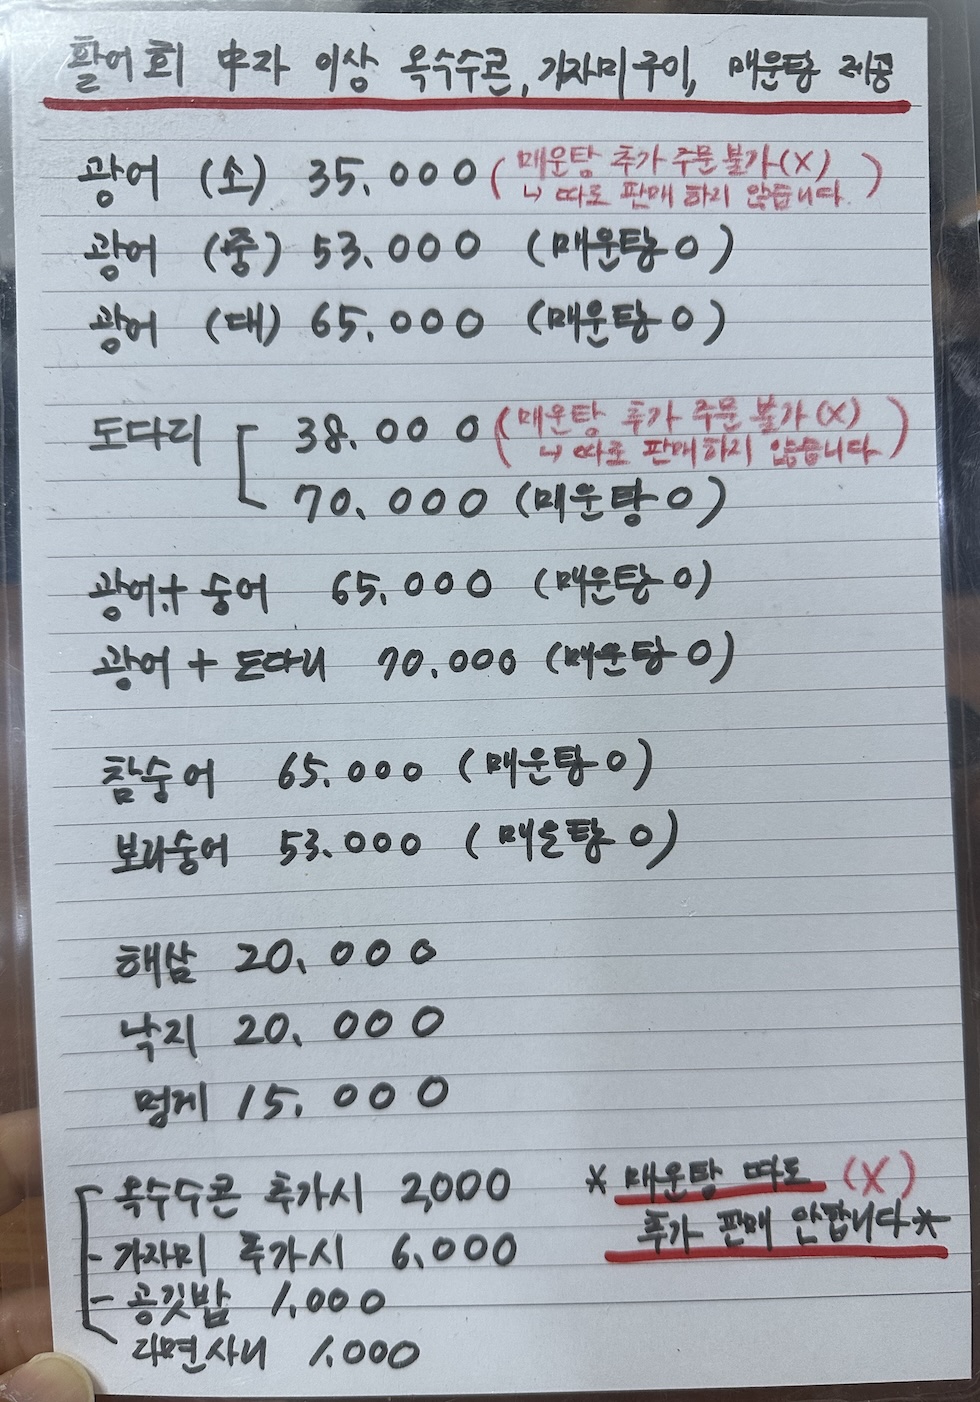 활어회 中자 이상 옥수수콘, 가자미구이, 매운탕 제공
광어 (소) 35.000 (매운탕 추가 주문 불가(X)
↳ 따로 판매 하지 않습니다.)
광어 (중) 53.000 (매운탕 O)
광어 (대) 65.000 (매운탕 O)
도다리 38.000 (매운탕 추가 주문 불가(X)
↳ 따로 판매하지 않습니다)
70.000 (매운탕 O)
광어+숭어 65.000 (매운탕 O)
광어+도다리 70.000 (매운탕 O)
참숭어 65.000 (매운탕 O)
보라숭어 53.000 (매운탕 O)
해삼 20.000
낙지 20.000
멍게 15.000
옥수수콘 추가시 2,000
가자미 추가시 6,000
공깃밥 1,000
라면사리 1,000
* 매운탕 따로 (X)
추가 판매 안합니다*